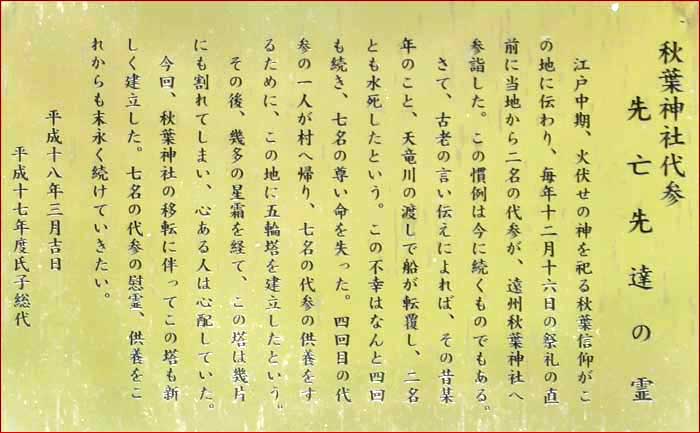 秋葉神社代参
先亡先達の霊
江戸中期、火伏せの神を祀る秋葉信仰がこ
の地に伝わり、毎年十二月十六日の祭礼の直
前に当地から二名の代参が、遠州秋葉神社へ
参詣した。この慣例は今に続くものでもある。
さて、古老の言い伝えによれば、その昔某
年のこと、天竜川の渡しで船が転覆し、二名
とも水死したという。この不幸はなんと四回
も続き、七名の尊い命を失った。四回目の代
参の一人が村へ帰り、七名の代参の供養をす
るために、この地に五輪塔を建立したという。
その後、幾多の星霜を経て、この塔は幾片
にも割れてしまい、心ある人は心配していた。
今回、秋葉神社の移転に伴ってこの塔も新
しく建立した。七名の代参の慰霊、供養をこ
れからも末永く続けていきたい。
平成十八年三月吉日
平成十七年度氏子総代